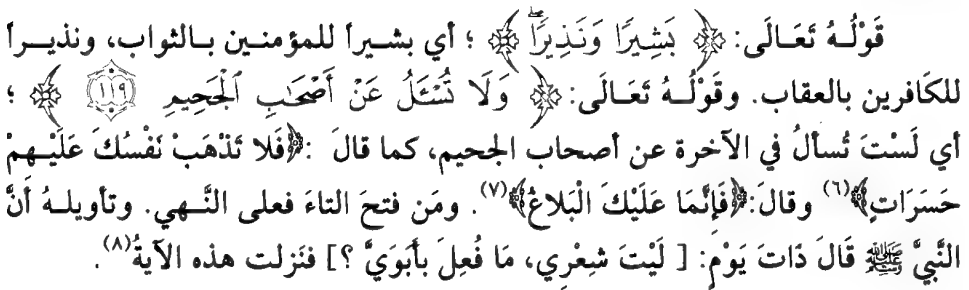 قَوْلُهُ تَعَالَى: ﴿ بَشِيرًا وَنَذِيرًاۖ ﴾ ؛ أي بشيراً للمؤمنين بالثواب، ونذيراً
للكَافرين بالعقاب. وقَوْلُهُ تَعَالَى: ﴿ وَلَا تُسْـَٔلُ عَنْ أَصْحَٰبِ ٱلْجَحِيمِ ١١٩ ﴾ ؛
أي لَسْتَ تُسأَلُ في الآخرة عن أصحاب الجحيم، كما قالَ : ﴿فَلا تَذْهَبْ نَفْسُكَ عَلَيْهِمْ
حَسَرَاتٍ﴾(٦) وقالَ: ﴿فَإِنَّمَا عَلَيْكَ الْبَلاَغُ﴾(٧). ومَن فتحَ التاءَ فعلى النَّهي. وتأويلهُ أنَّ
النَّبيَّ ﷺ قَالَ ذَاتَ يَوْمٍ: [ لَيْتَ شِعْرِي، مَا فُعِلَ بأَبَوَيَّ ؟ ] فنَزلت هذه الآيةُ(٨).